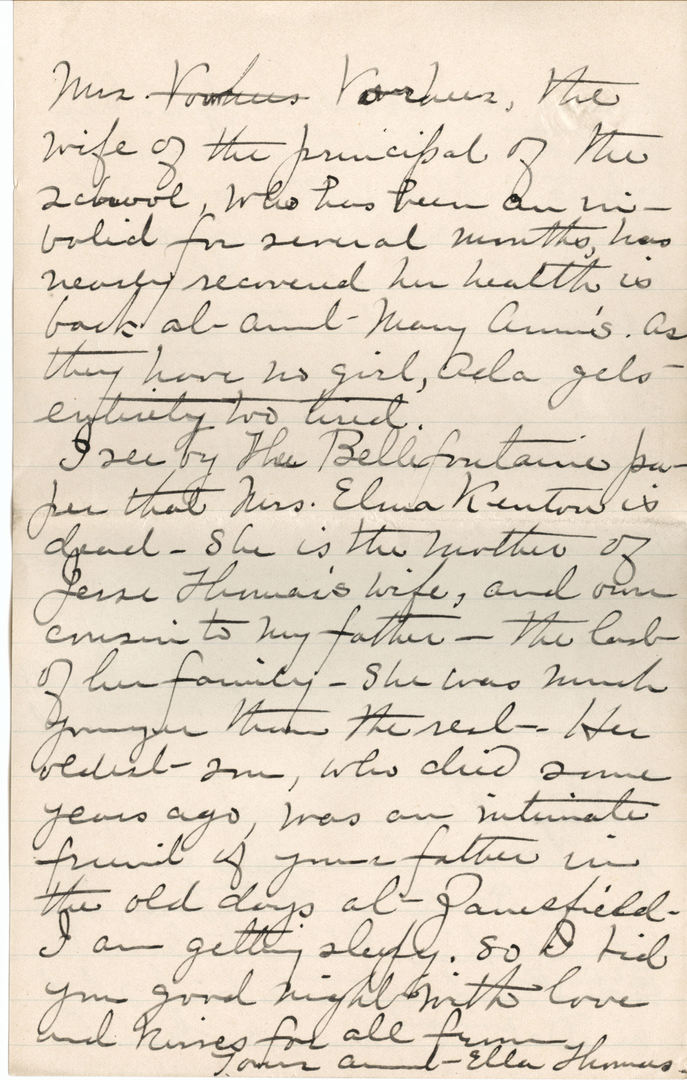 Mrs. Voorhees Voorhees, the
wife of the principal of the
school, who has been an in-
valid for several months, has
nearly recovered her health is
back at aunt Mary Ann's. As
they have no girl, Ada gets
entirely too tired.
I see by the Bellefontaine pa-
per that Mrs. Elma Kenton is
dead - She is the mother of
Jesse Thomas's wife, and own
cousin to my father - the last
of her family - She was much
younger than the rest - Her
oldest son, who died some
years ago, was an intimate
friend of your father in
the old days at Zanesfield -
I am getting sleepy. So I bid
you good night with love
and kisses for all from
Your aunt - Ella Thomas.